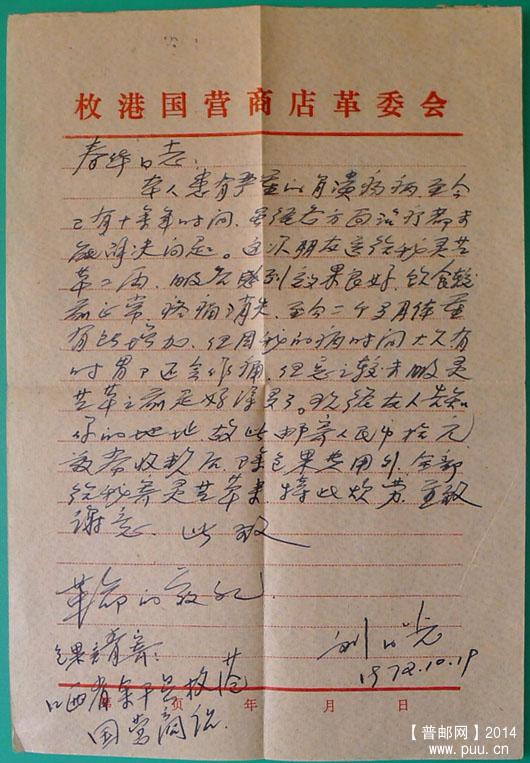 枚港国营商店革委会
春华同志:
本人患有严重的胃溃疡病,至今
已有十余年时间,虽经各方面治疗都未
能解决问题。这次朋友送给我灵芝
草二两,服后感到效果良好,饮食较
前正常,疼痛消失,至今二个多月体重
有些增加,但因我的病时间太久有
时胃下还会作痛,但总之较未服灵
芝草之前是好得多了。现经友人告知
你的地址,故此邮寄人民币拾元,
敬希收款后,除包裹费用外,全部
给我寄灵芝草来,特此烦劳,重致
谢意。此致
革命的敬礼
刘
1972.10.19
包裹请寄:
江西省余干县枚港
国营商店.
第 页 年 月 日
【普邮网】2014
www.puu.cn